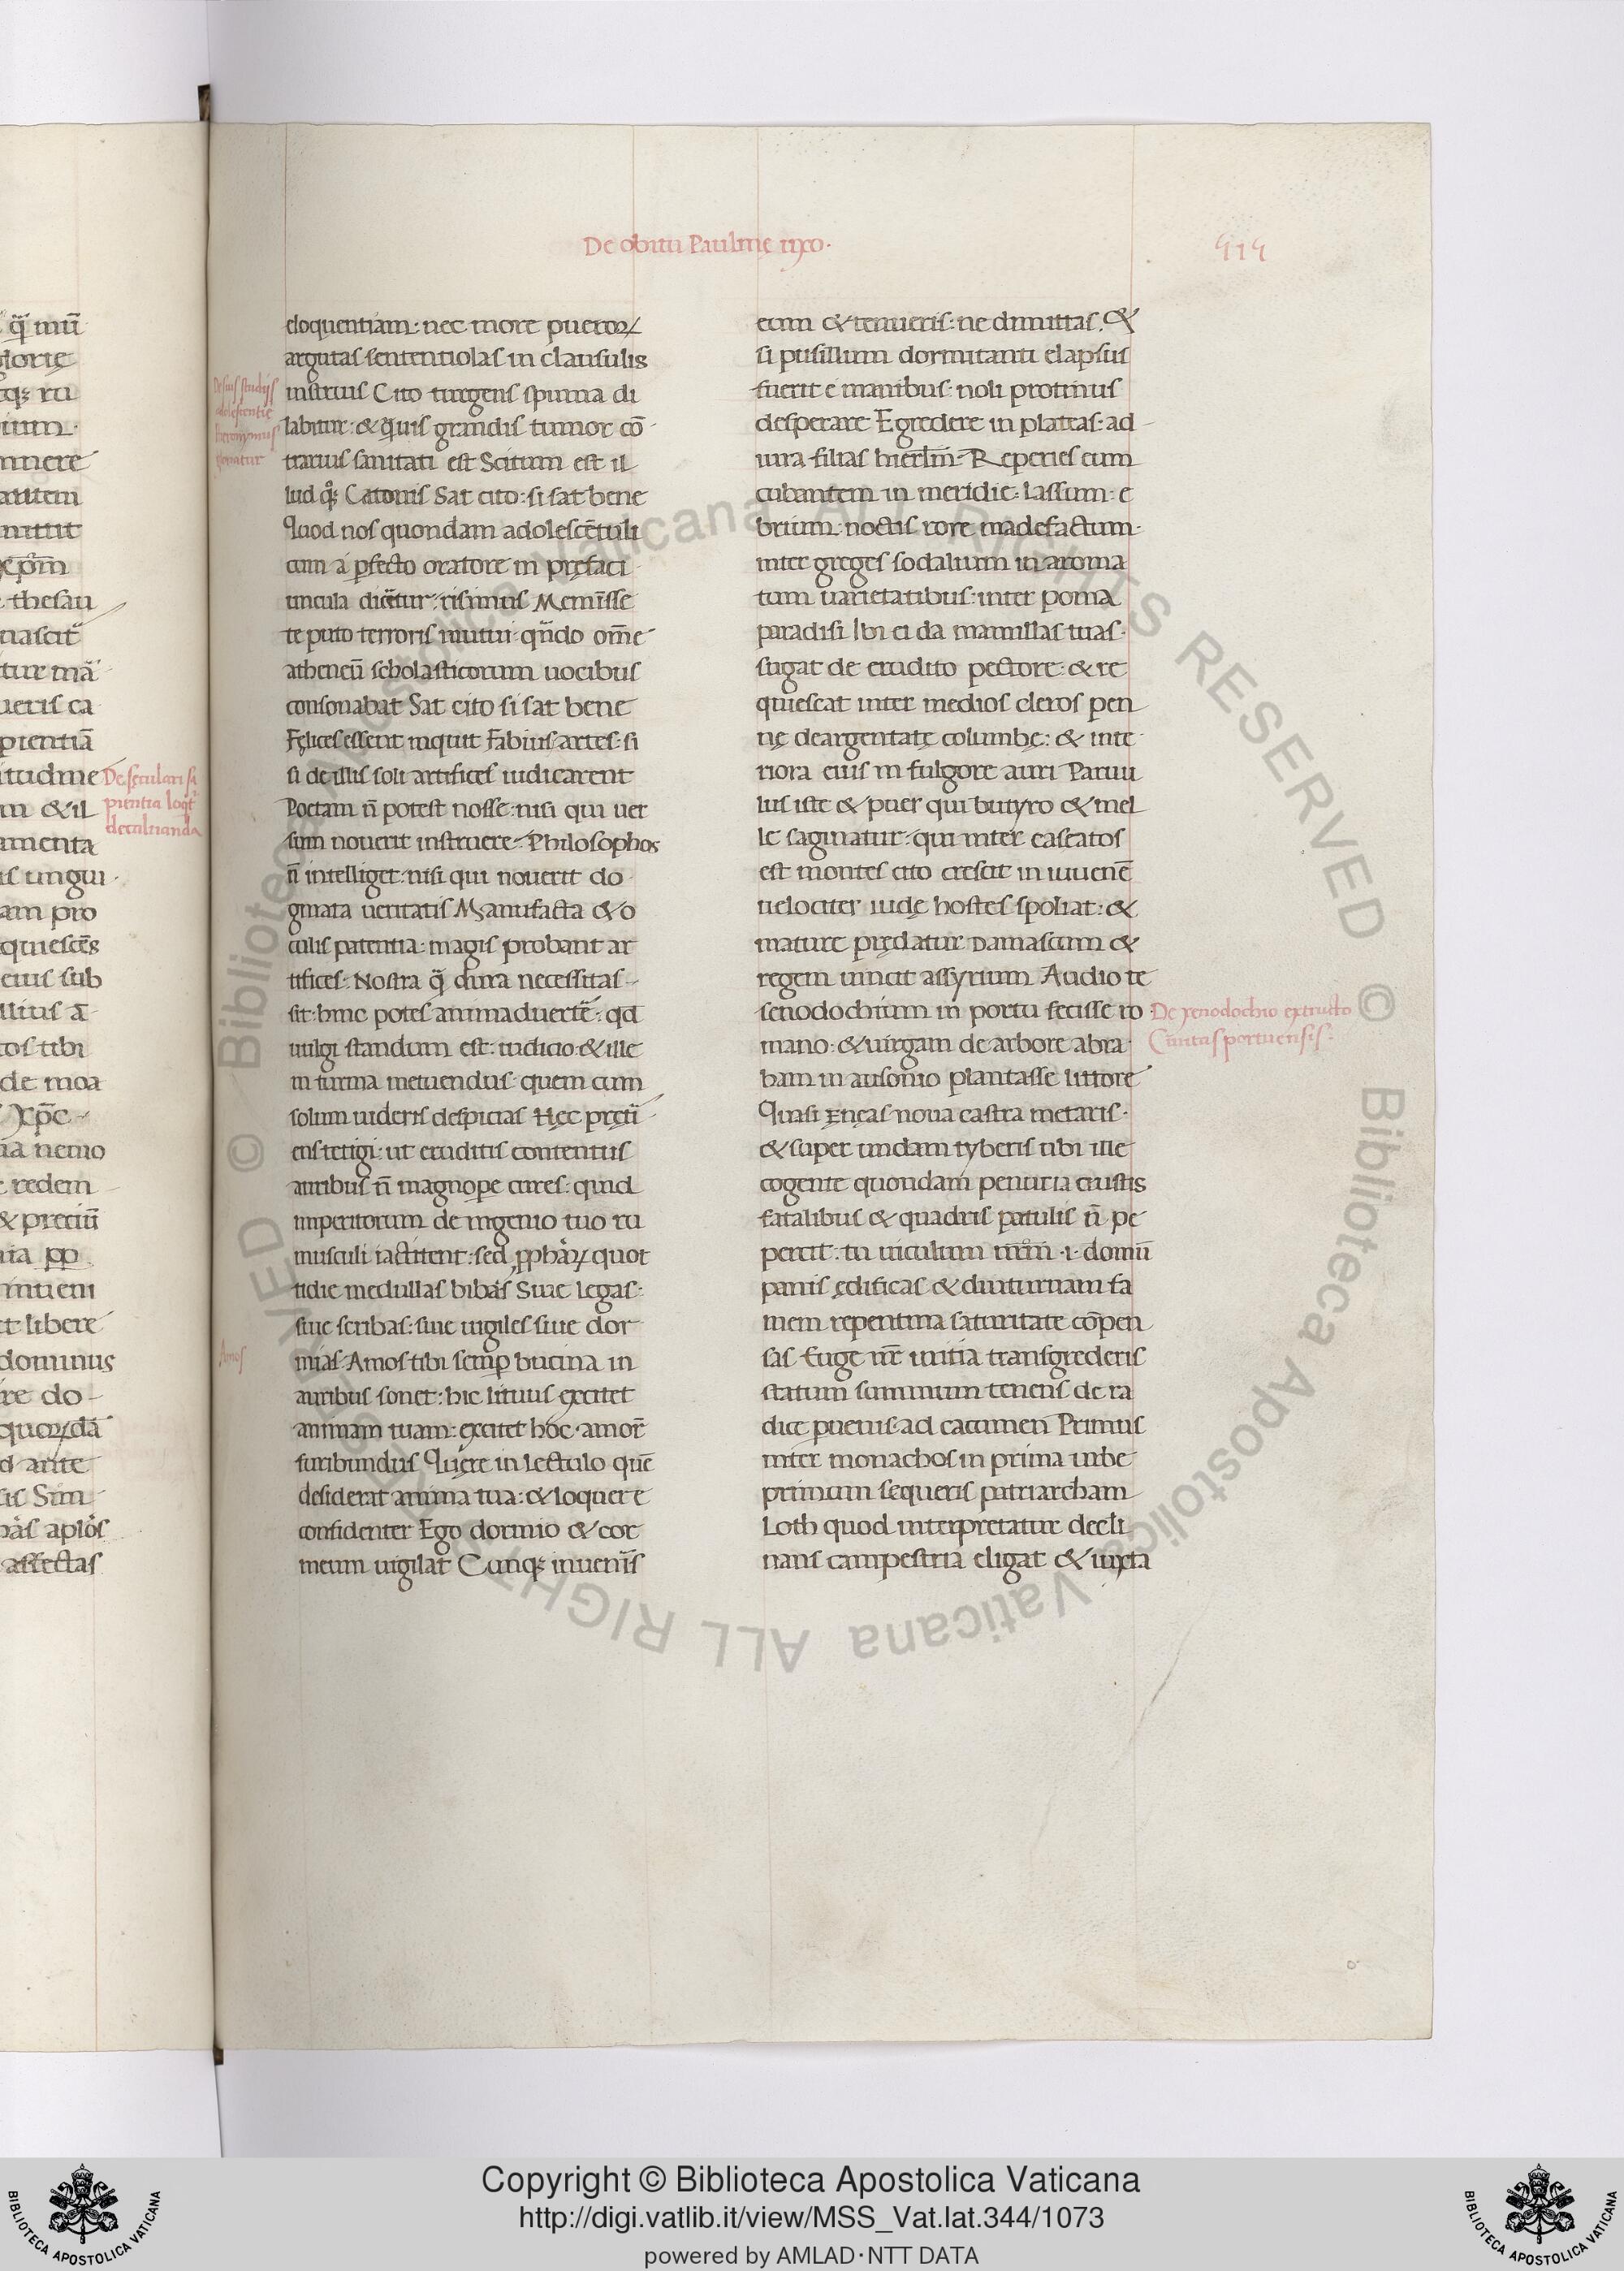 De obitu Pauline uxo·
414
eloquentiam: nec more pueroꝝ
argutas sententiolas in clausulis
instruis Cito turgens spuma di
labitur: & q̃uis grandis tumor cō
trarius sanitati est Scitum est il
lud q̊ꝫ Catonis Sat cito: si sat bene
Quod nos quondam adolescētuli
cum a ꝑfecto oratore in pręfaci
uncula dicēt̃ur: risimus Meminisse
te puto terroris mutui· qñdo om̃e
atheneū scholasticorum uocibus
consonabat Sat cito si sat bene
Fęlices essent inquit Fabius artes: si
si de illis soli artifices iudicarent
Poetam ñ potest nosse: nisi qui uer
sum nouerit instruere: Philosophos
ñ intelliget: nisi qui nouerit do
gmata ueritatis Manufacta & o
culis patentia: magis probant ar
tifices: Nostra q̃ dura necessitas
sit: hinc potes animaduertē: qd̄
uulgi standum est: iudicio: & ille
in turma metuendus· quem cum
solum uideris despicias Hęc pręt̃i
ens tetigi: ut eruditis contentus
auribus ñ magnopere cures: quid
imperitorum de ingenio tuo ru
musculi iactitent: sed ꝓphaꝝ quot
tidie medullas bibas Siue legas:
siue scribas: siue uigiles siue dor
mias· Amos tibi semꝑ bucina in
auribus sonet: hic lituus excitet
animam tuam: excitet hoc· amor̃
furibundus Quęre in lectulo quē
desiderat anima tua: & loquere
confidenter Ego dormio & cor
meum uigilat Cunqꝫ inueñis
eum & tenueris: ne dimittas: &
si pusillum dormitanti elapsus
fuerit e manibus: noli protinus
desperare Egredere in plateas: ad
iura filias hierl̄m: Reperies eum
cubantem in meridie: lassum: e
brium: noctis rore madefactum·
inter greges sodalium in aroma
tum uarietatibus: inter poma
paradisi Ibi ei da mamillas tuas·
sugat de erudito pectore: & re
quiescat inter medios cleros pen
nę deargentatę columbę: & inte
riora eius in fulgore auri Paruu
lus iste & puer qui butyro & mel
le saginatur: qui inter caseatos
est montes cito crescit in iuuenē
uelociter iudę hostes spoliat: &
mature prędatur Damascum &
regem uincit assyrium Audio te
senodochium in portu fecisse ro
mano: & uirgam de arbore abra
ham in ausonio plantasse littore
Quasi Ęneas noua castra metaris·
& super undam tyberis ubi ille
cogente quondam penuria crustis
fatalibus & quadris patulis ñ pe
percit: tu uiculum nr̄m ·i· domū
panis ędificas & diuturnam fa
mem repentina saturitate cōpen
sas Euge nr̄ initia transgrederis
statum summum tenens de ra
dice puenis· ad cacumen Primus
inter monachos in prima urbe
primum sequeris patriarcham
Loth quod interpretatur decli
nans campestria eligat & iuxta
De suis studijs
adolescentię
hieronymus
Amos
De xenodochio extructo
Ciuitas portuensis:
q̃ mū
lorię
qꝫ ru
ium·
autem
mittit
thesau
nascit̃
tur ma
ueris ca
pientiā
itudine
m & il
amenta
is ungui·
am pro
quiescēs
eius sub
llius ā
tos tibi
de moa
Xp̄c
ia nemo
redem
& preciū
nia pp
t libere
dominus
re do
quoꝝdā
d ante
is Sim
bas aplos
affectas
De sęculari sa
pientia loq̃t
decaluanda
Copyright © Biblioteca Apostolica Vaticana
http://digi.vatlib.it/view/MSS_Vat.lat.344/1073
powered by AMLAD·NTT DATA
© Biblioteca Apostolica Vaticana ALL RIGHTS RESERVED
© Biblioteca Apostolica Vaticana ALL RIGHTS RESERVED
BIBLIOTECA APOSTOLICA VATICANA
BIBLIOTECA APOSTOLICA VATICANA